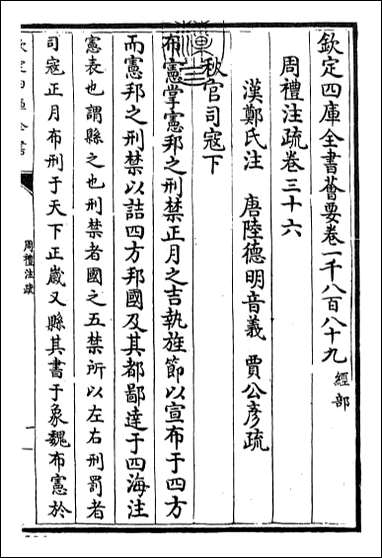 欽定四庫全書薈要卷一千八百八十九 經部
周禮注疏卷三十六
漢鄭氏注 唐陸德明音義 賈公彥疏
秋官司寇下
布憲掌憲邦之刑禁正月之吉執旌節以宣布于四方
而憲邦之刑禁以詰四方邦國及其都鄙達于四海注
憲表也謂縣之也刑禁者國之五禁所以左右刑罰者
司寇正月布刑于天下正歲又縣其書于象魏布憲於
周禮注疏
一